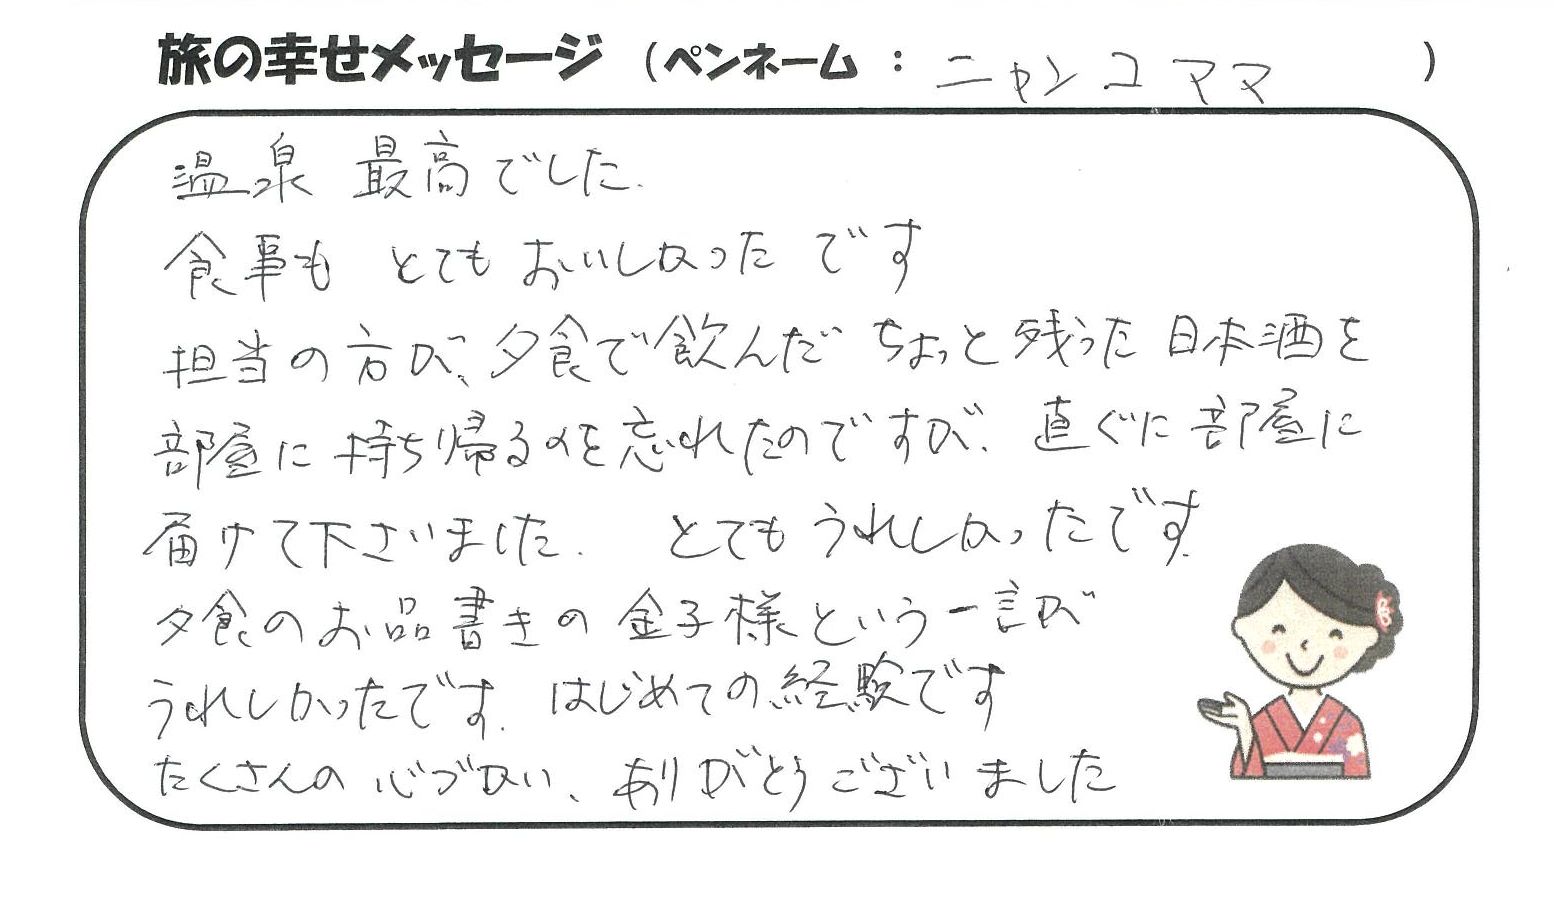 旅の幸せメッセージ （ペンネーム ： ニャンコママ ）
温泉 最高でした.
食事も とても おいしかった です
担当の方が、夕食で飲んだ ちょっと残った 日本酒を
部屋に持ち帰るのを忘れたのですが、直ぐに部屋に
届けて下さいました. とても うれしかったです.
夕食のお品書きの 金子様という一言が
うれしかったです. はじめての経験です
たくさんの 心づかい、ありがとうございました